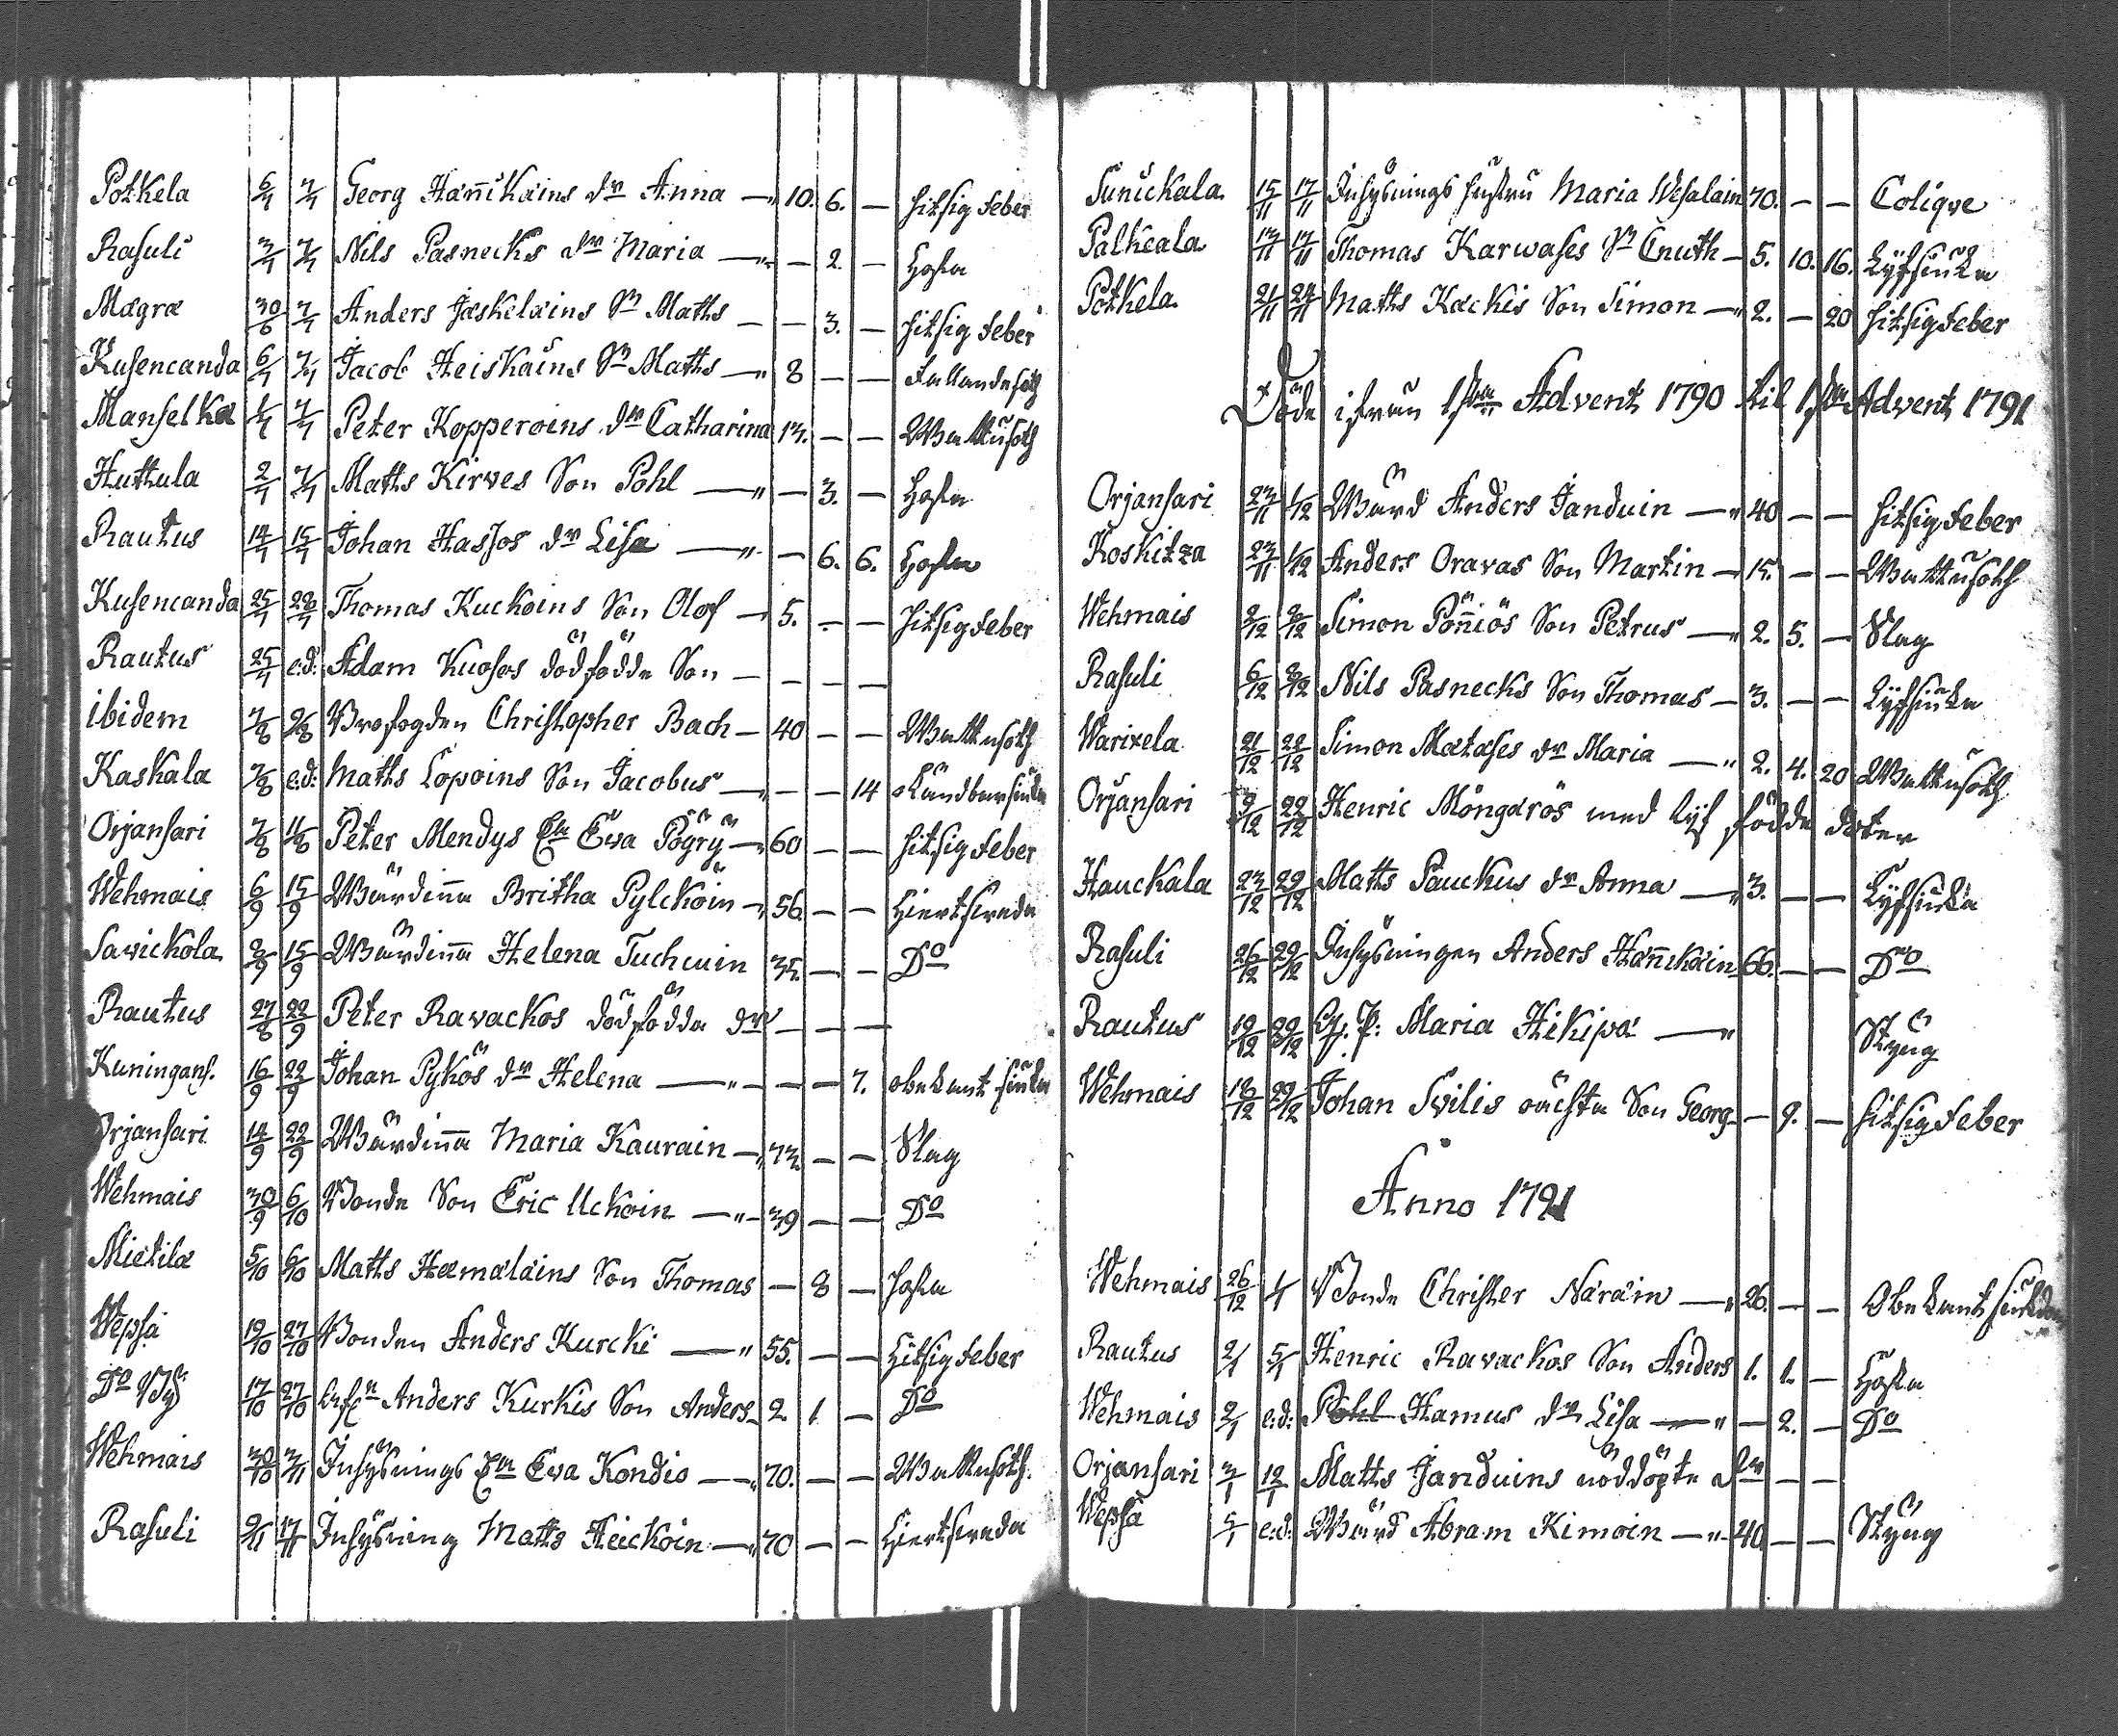 Potkela 6/7 7/7 Georg Hañikains dr Anna — 10. 6. — hitsig feber
Rasuli 3/7 7/7 Nils Pasnecks dr Maria — — 2. — Hosta
Mägrä 30/6 7/7 Anders Jäskeläins Sn Maths — — 3. — hitsig feber
Kusencanda 6/7 7/7 Jacob Heiskains Sn Maths — 8 — — Fallandesot
Manselkä 1/7 7/7 Peter Kopperoins dr Catharina 13. — — Wattusoth
Huttula 2/7 7/7 Maths Kirves Son Pohl — — 3. — Hosta
Rautus 14/7 15/7 Johan Hassos dr Lisa — — 6. 6. Hosta
Kusencanda 25/7 28/7 Thomas Kuckoins Son Olof — 5. — — Hitsig feber
Rautus 25/7 e.d: Adam Kuosos dödfödde Son — — — —
ibidem 7/8 9/8 Brofogden Christopher Bach — 40 — — Wattusoth
Kaskala 7/8 e.d: Maths Lopoins Son Jacobus — — — 14
Orjansari 7/8 11/8 Peter Mendys Eva Pögry — 60 — — hitsig feber
Wehmais 6/9 15/9 Wärdiña Britha Pylcköin — 56. — — Hiertsveda
Savickola 8/9 15/9 Wärdiña Helena Tuchuin 35. — — Do
Rautus 27/8 22/9 Peter Ravackos dödfödda dr — — —
Kuningans. 16/9 22/9 Johan Pykös dr Helena — — — 7. obekant siuka
Orjansari 14/9 22/9 Wärdiña Maria Kaurain — 73. — — Slag
Wehmais 30/9 6/10 Bonde Son Eric Uckoin — 39 — — Do
Mietilä 5/10 6/10 Maths Hämäläins Son Thomas — 8 — hosta
Wepsä 19/10 27/10 Bonden Anders Kurcki — 55. — — Hitsig feber
Do By 17/10 27/10 Anders Kurkis Son Anders — 2. 1. — Do
Wehmais 30/10 3/11 Inhysnings Eva Kondio — 70. — — Wattusoth.
Rasuli 9/11 17/11 Inhysning Matts Heickoin — 70 — — Hiertsveda
Sunickala 15/11 17/11 Inhysnings hustru Maria Wesalain 70. — — Coliqve
Palkeala 13/11 17/11 Thomas Karwases Sn Cnuth — 5. 10. 16. Lyfsiuka
Potkela 21/11 24/11 Maths Kackis Son Simon — 2. — 20 hitsig feber
Döde ifrån 1sta Advent 1790 til 1sta Advent 1791
Orjansari 23/11 1/12 Wärd Anders Janduin — 40 — — hitsig feber
Koskitza 23/11 1/12 Anders Oravas Son Martin — 15. — — Wattusoth
Wehmais 2/12 8/12 Simon Poñiös Son Petrus — 2. 5. — Slag
Rasuli 6/12 8/12 Nils Pasnecks Son Thomas — 3. — — Lyfsiuka
Warixela 21/12 22/12 Simon Mätäses dr Maria — 2. 4. 20 Wattusoth
Orjansari 9/12 22/12 Henric Möngärös med lyf födde doter
Hauckala 23/12 29/12 Matts Pauckus dr Anna — 3. — — Lyfsiuka
Rasuli 26/12 29/12 Inhysningen Anders Häñickäin 66. — — Do
Rautus 19/12 29/12 Maria Hikipä — Styng
Wehmais 18/12 29/12 Johan Svilis oächta Son Georg — 9. — hitsig feber
Anno 1791
Wehmais 26/12 1/1 Bonde Christer Näräin — 26. — — Obekant siukdom
Rautus 2/1 5/1 Henric Ravackos Son Anders 1. 1. — Hosta
Wehmais 2/1 e.d: Pohl Hamus dr Lisa — — 2. — Do
Orjansari 3/1 12/1 Matts Janduins nöddöpte dr — —
Wepsä 5/1 e.d: Wärd Abram Kimoin — 40. — — Styng